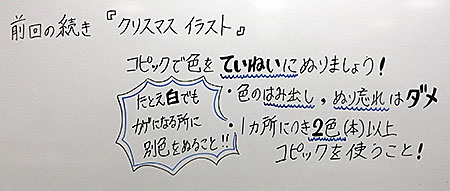 前回の続き『クリスマス イラスト』
コピックで色をていねいにぬりましょう!
・色のはみ出し,ぬり忘れはダメ
・1カ所につき2色(本)以上
コピックを使うこと!
たとえ白でも
カゲになる所に
別色をぬること!!